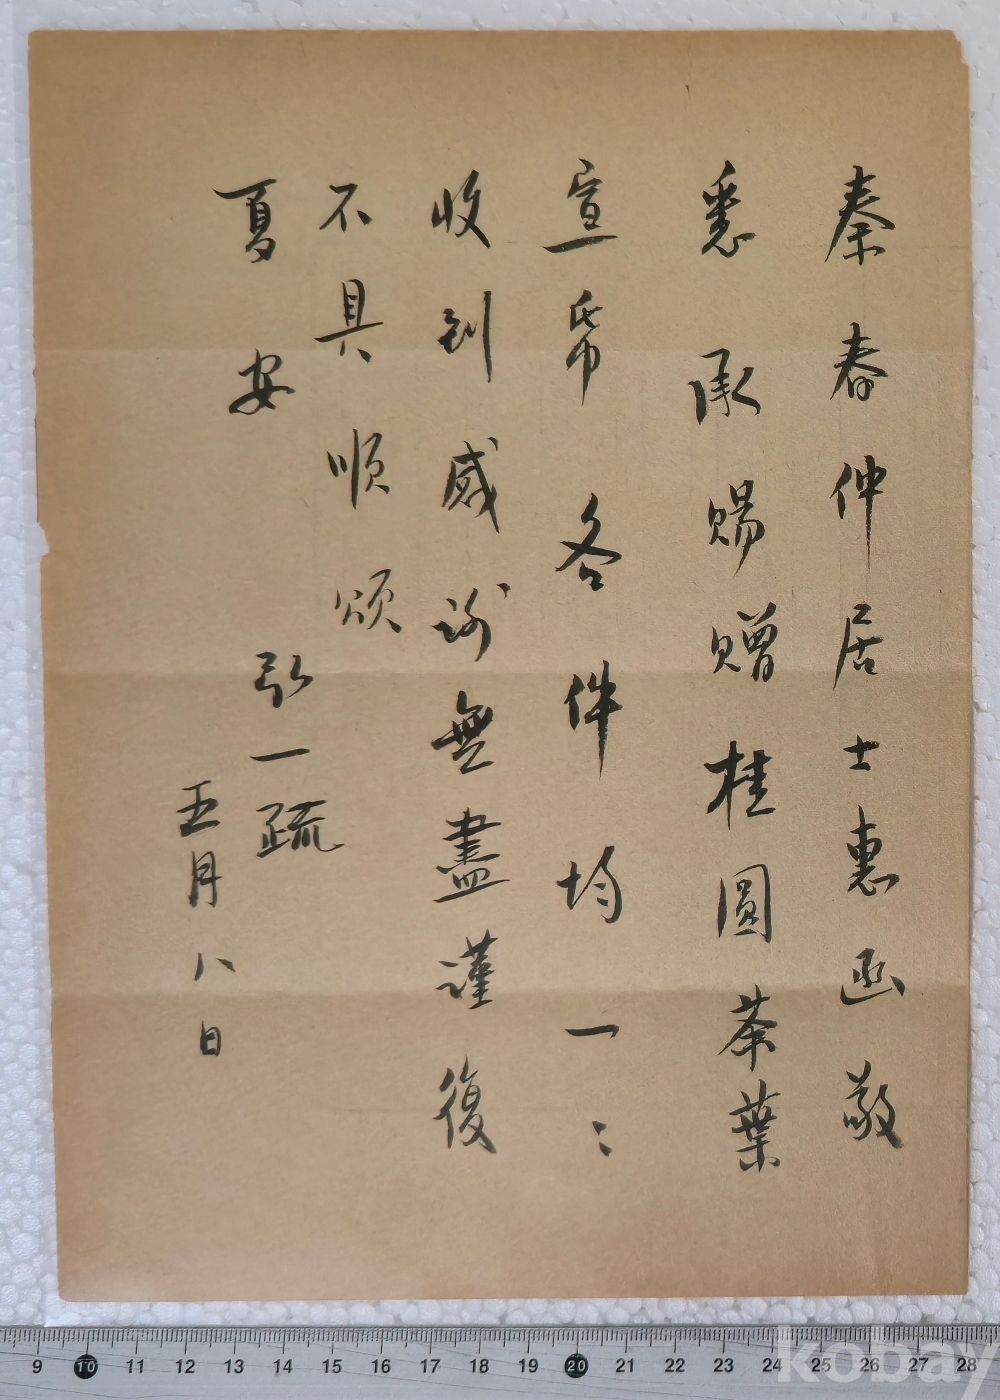 秦春仲居士惠函敬
悉承賜贈桂圓茶葉
宣帋各件均一〻
收到感謝無盡謹復
不具順頌
夏安
弘一疏
五月八日
9 10 11 12 13 14 15 16 17 18 19 20 21 22 23 24 25 26 27 28
kobay